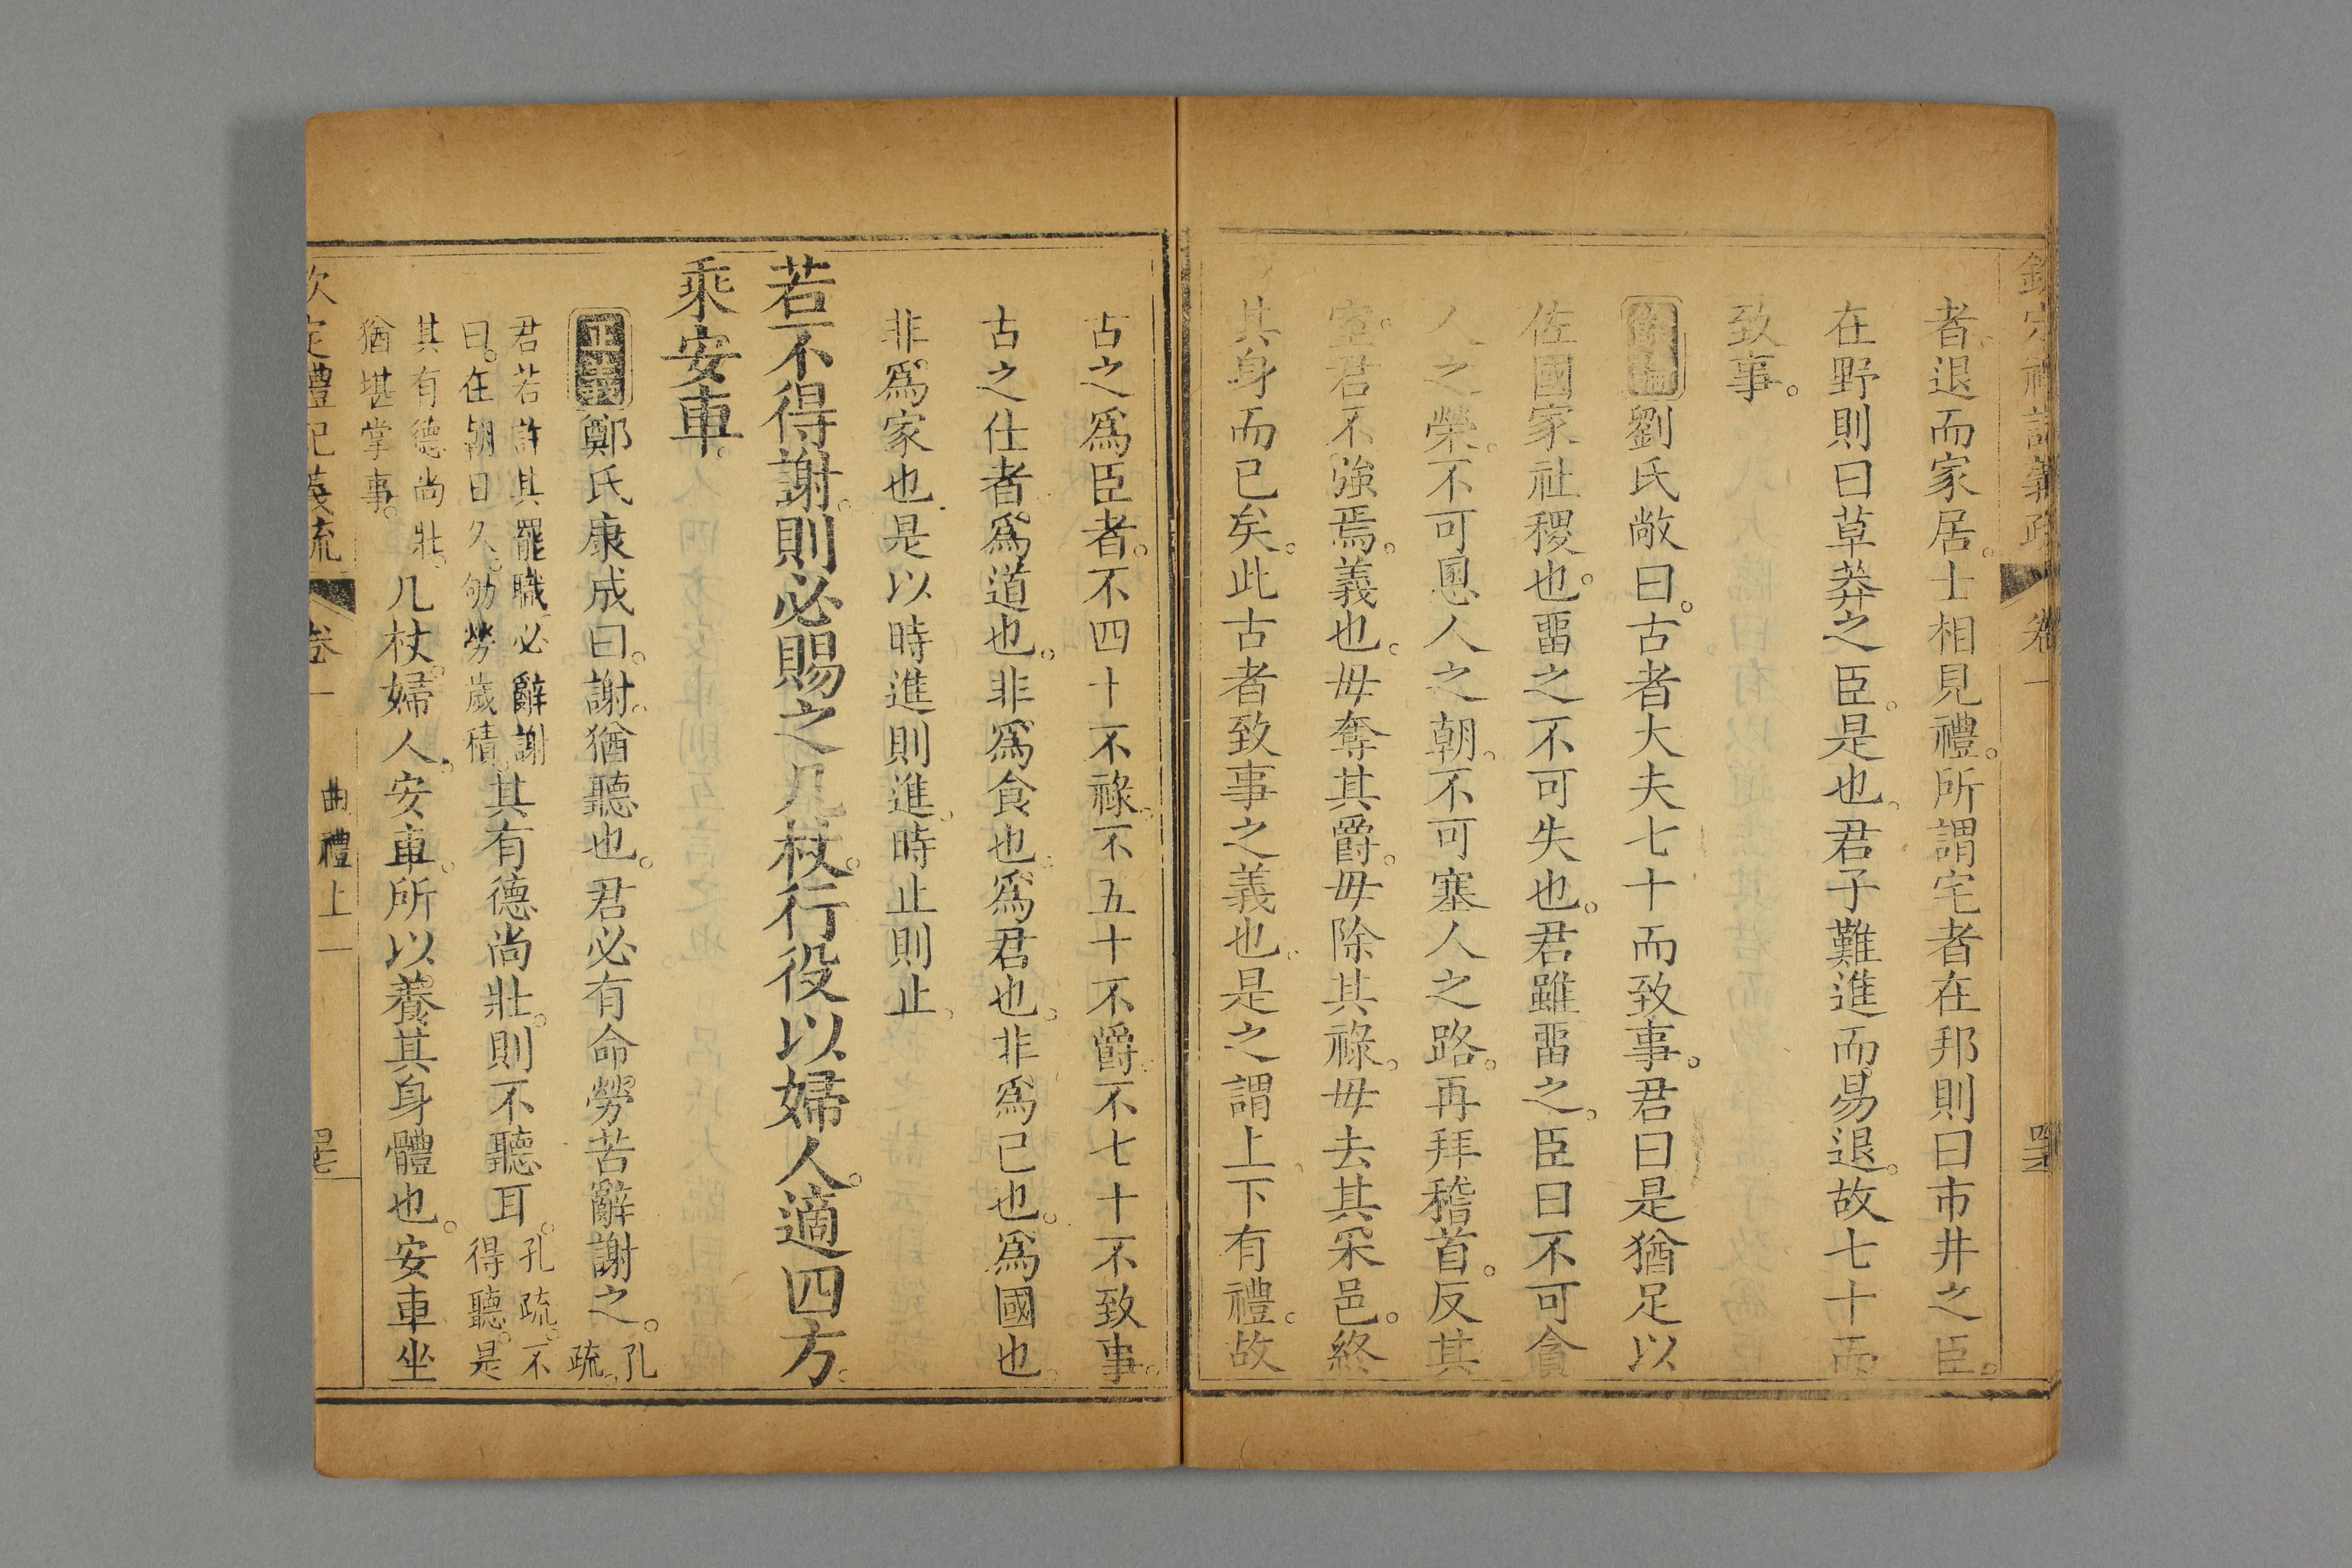 欽定禮記義疏 卷一
者。退而家居。士相見禮。所謂宅者在邦則曰市井之臣。
在野則曰草莽之臣。是也。君子難進而易退。故七十而
致事。
劉氏敞曰。古者大夫七十而致事。君曰是猶足以
佐國家社稷也。畱之不可失也。君雖畱之。臣曰不可貪
人之榮。不可慁人之朝。不可塞人之路。再拜稽首。反其
室。君不強焉。義也。毋奪其爵。毋除其祿。毋去其采邑。終
其身而已矣。此古者致事之義也。是之謂上下有禮。故
古之爲臣者。不四十不祿。不五十不爵。不七十不致事。
古之仕者。爲道也。非爲食也。爲君也。非爲己也。爲國也。
非爲家也。是以時進則進。時止則止。
若不得謝。則必賜之几杖。行役以婦人。適四方。
乘安車。
正義 鄭氏康成曰。謝。猶聽也。君必有命勞苦辭謝之。孔疏。
君若許其罷職必辭謝
曰。在朝日久。劬勞歲積。其有德尚壯。則不聽耳。孔疏。不
得聽。是
其有德尚壯。
猶堪掌事。几杖。婦人。安車。所以養其身體也。安車坐
欽定禮記義疏 卷一 曲禮上一 四七